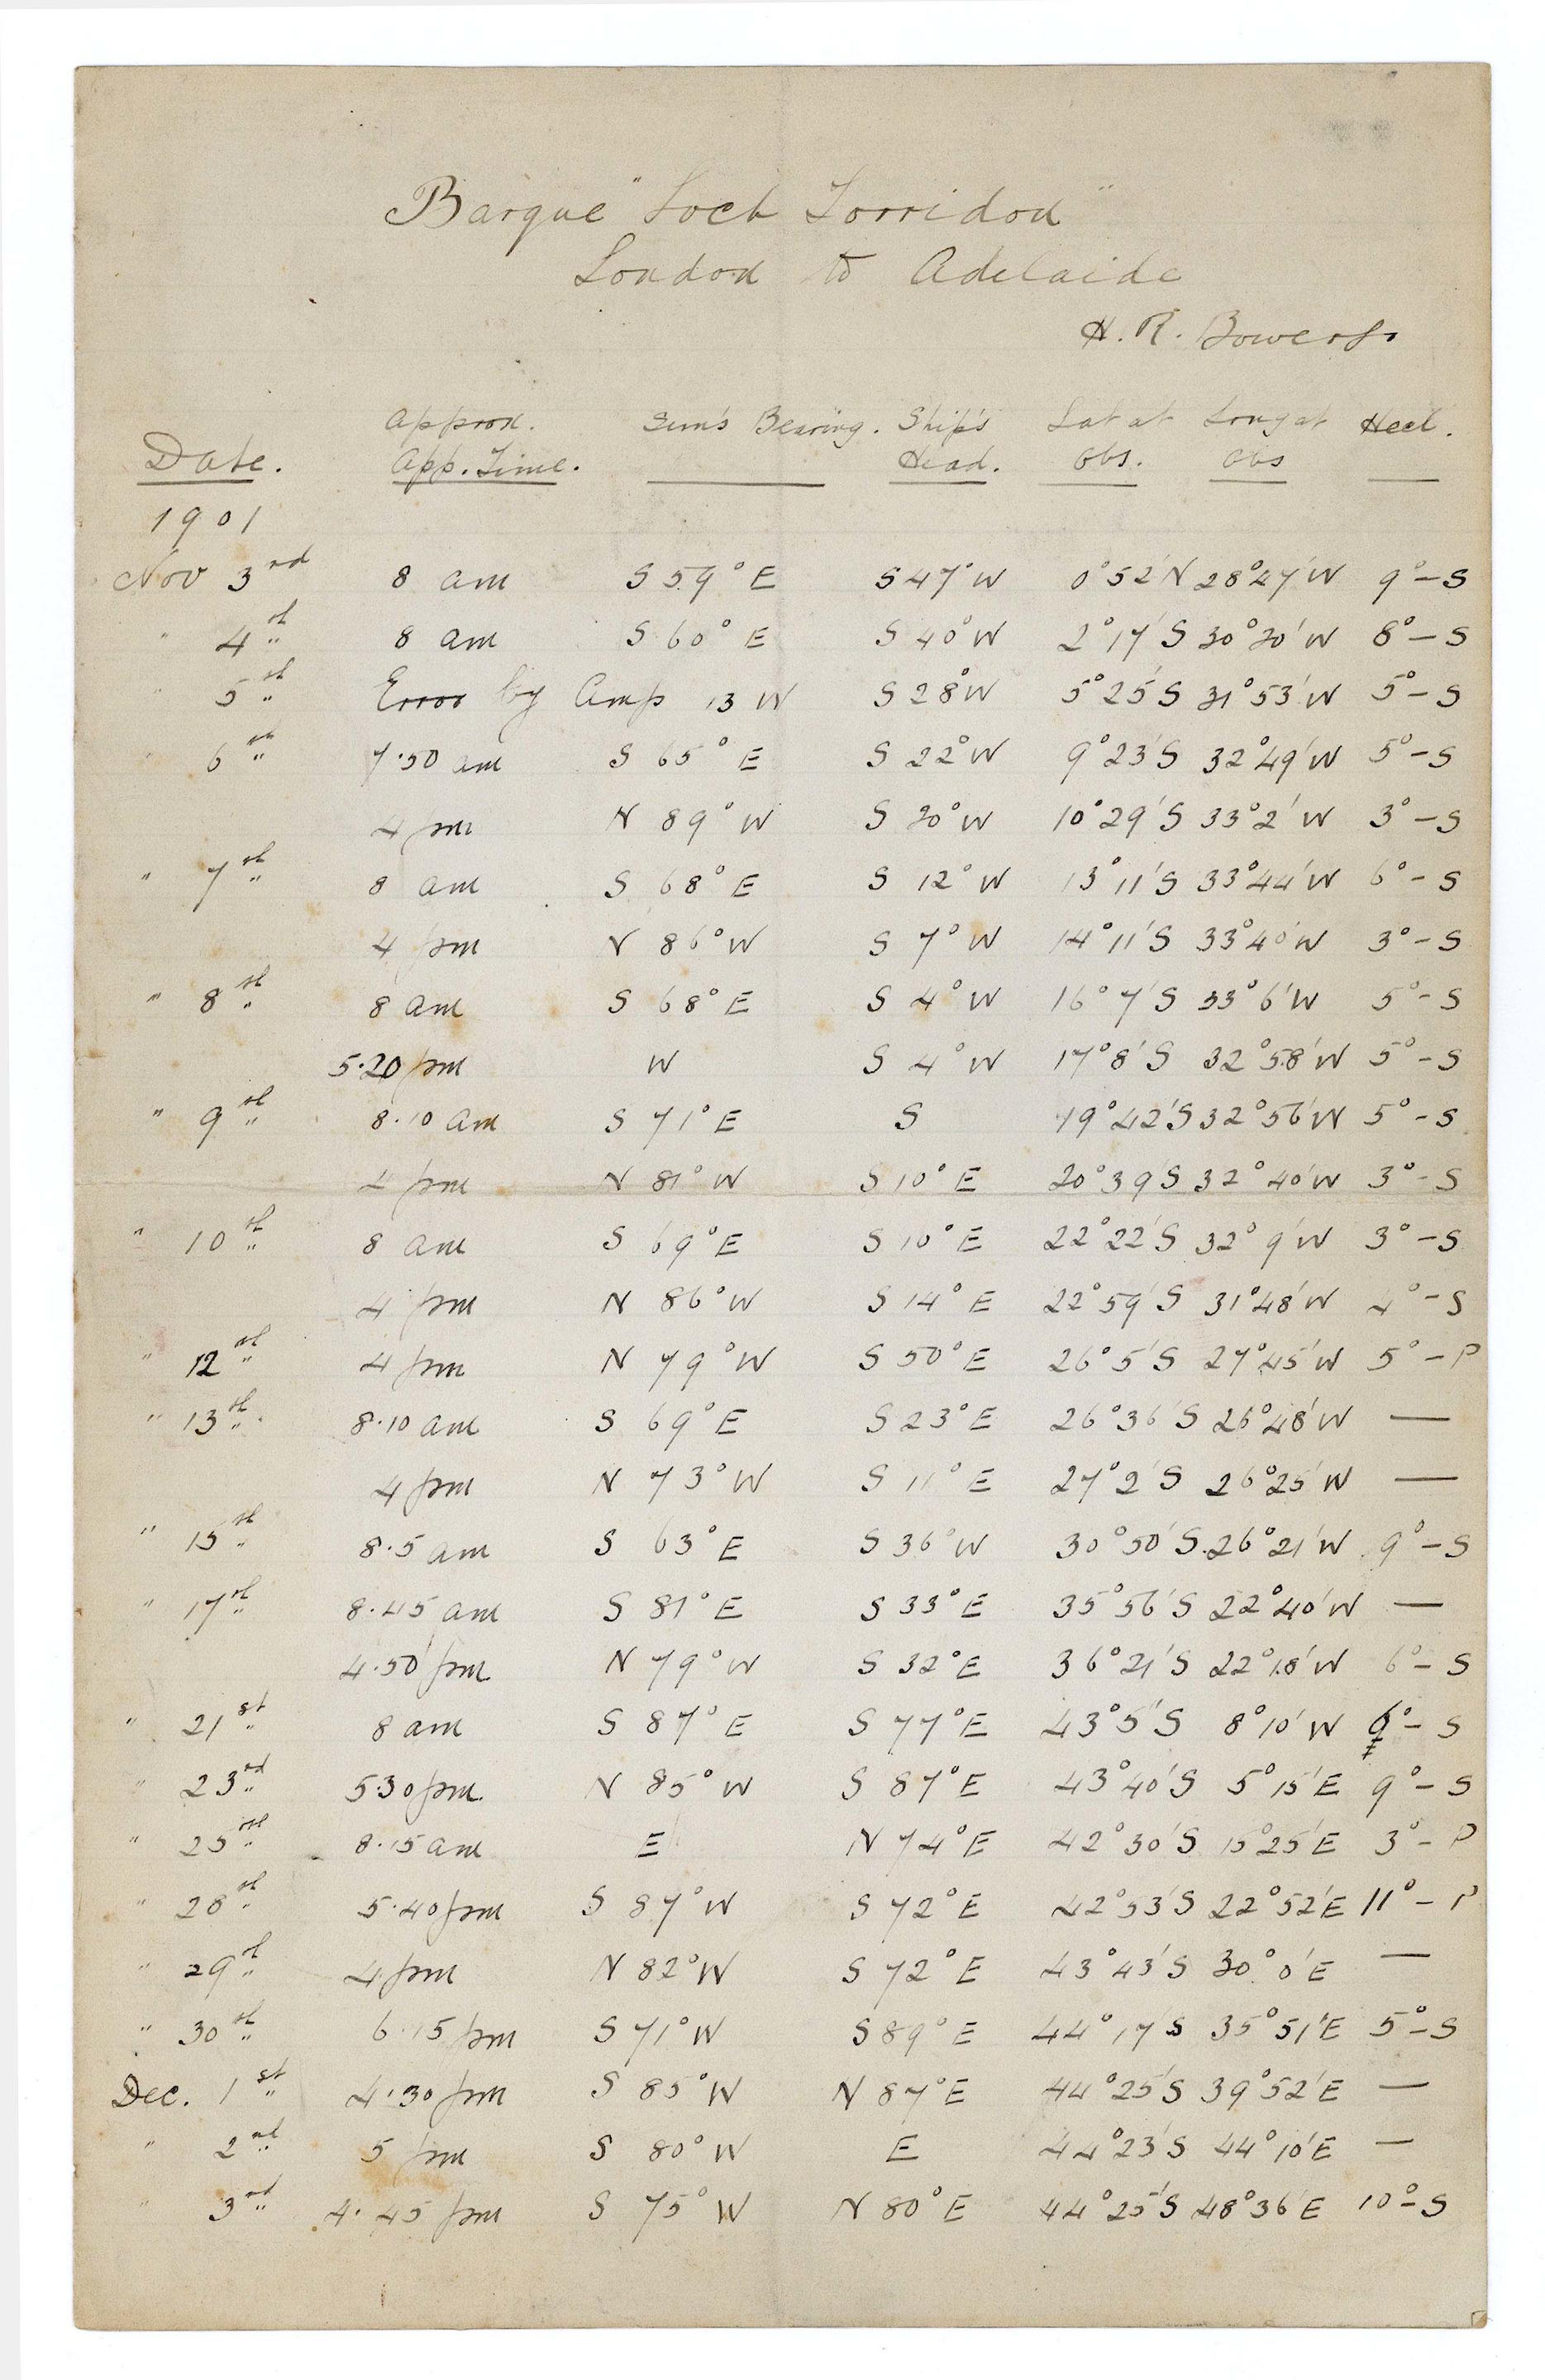 Barque "Loch Torridon"
London to Adelaide
H. R. Bowers.
Approx. Sun's Bearing. Ship's Lat at Long at Heel.
Date. App. Time. Head. Obs. Obs
1901
Nov 3rd 8 am S 59° E S 47° W 0° 52' N 28° 47' W 9° – S
" 4th 8 am S 60° E S 40° W 2° 17' S 30° 20' W 8° – S
" 5th Error by Amp 13 W S 28° W 5° 25' S 31° 53' W 5° – S
" 6th 7.50 am S 65° E S 22° W 9° 23' S 32° 49' W 5° – S
4 pm N 89° W S 20° W 10° 29' S 33° 2' W 3° – S
" 7th 8 am S 68° E S 12° W 13° 11' S 33° 44' W 6° – S
4 pm N 86° W S 7° W 14° 11' S 33° 40' W 3° – S
" 8th 8 am S 68° E S 4° W 16° 7' S 33° 6' W 5° – S
5.20 pm W S 4° W 17° 8' S 32° 58' W 5° – S
" 9th 8.10 am S 71° E S 19° 42' S 32° 56' W 5° – S
4 pm N 81° W S 10° E 20° 39' S 32° 40' W 3° – S
" 10th 8 am S 69° E S 10° E 22° 22' S 32° 9' W 3° – S
4 pm N 86° W S 14° E 22° 59' S 31° 48' W 4° – S
" 12th 4 pm N 79° W S 50° E 26° 5' S 27° 45' W 5° – P
" 13th 8.10 am S 69° E S 23° E 26° 36' S 26° 48' W —
4 pm N 73° W S 11° E 27° 2' S 26° 25' W —
" 15th 8.5 am S 63° E S 36° W 30° 50' S 26° 21' W 9° – S
" 17th 8.45 am S 81° E S 33° E 35° 56' S 22° 40' W —
4.50 pm N 79° W S 32° E 36° 21' S 22° 18' W 6° – S
" 21st 8 am S 87° E S 77° E 43° 5' S 8° 10' W 6° – S
" 23rd 5.30 pm N 85° W S 87° E 43° 40' S 5° 15' E 9° – S
" 25th 8.15 am E N 74° E 42° 30' S 15° 25' E 3° – P
" 28th 5.40 pm S 87° W S 72° E 42° 53' S 22° 52' E 11° – P
" 29th 4 pm N 82° W S 72° E 43° 43' S 30° 0' E —
" 30th 6.15 pm S 71° W S 89° E 44° 17' S 35° 51' E 5° – S
Dec. 1st 4.30 pm S 85° W N 87° E 44° 25' S 39° 52' E —
" 2nd 5 pm S 80° W E 44° 23' S 44° 10' E —
" 3rd 4.45 pm S 75° W N 80° E 44° 25' S 48° 36' E 10° – S